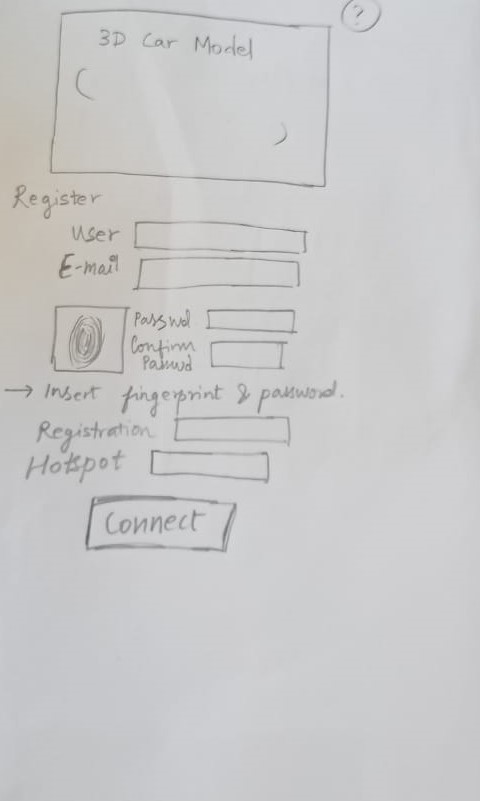 ?
3D Car Model
Register
User
E-mail
Passwd
Confirm
Passwd
→ Insert fingerprint & password.
Registration
Hotspot
Connect